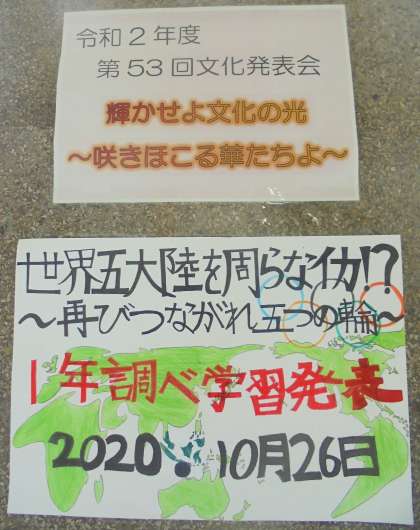 令和2年度
第53回文化発表会
輝かせよ文化の光
～咲きほこる華たちよ～
世界五大陸を周らなイカ!?
～再びつながれ五つの輪～
1年調べ学習発表
2020. 10月26日